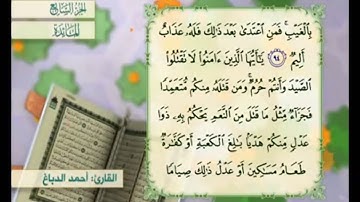 الجزء السابع
المائدة
بِالْغَيْبِ ۚ فَمَنِ اعْتَدَىٰ بَعْدَ ذَٰلِكَ فَلَهُ عَذَابٌ
أَلِيمٌ ٩٤ يَا أَيُّهَا الَّذِينَ آمَنُوا لَا تَقْتُلُوا
الصَّيْدَ وَأَنْتُمْ حُرُمٌ ۚ وَمَنْ قَتَلَهُ مِنْكُمْ مُتَعَمِّدًا
فَجَزَاءٌ مِثْلُ مَا قَتَلَ مِنَ النَّعَمِ يَحْكُمُ بِهِ ذَوَا
عَدْلٍ مِنْكُمْ هَدْيًا بَالِغَ الْكَعْبَةِ أَوْ كَفَّارَةٌ
طَعَامُ مَسَاكِينَ أَوْ عَدْلُ ذَٰلِكَ صِيَامًا
القارئ: أحمد الدباغ